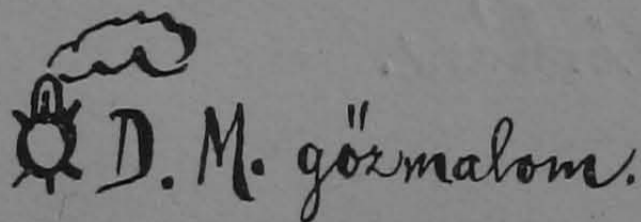 D. M. gőzmalom.